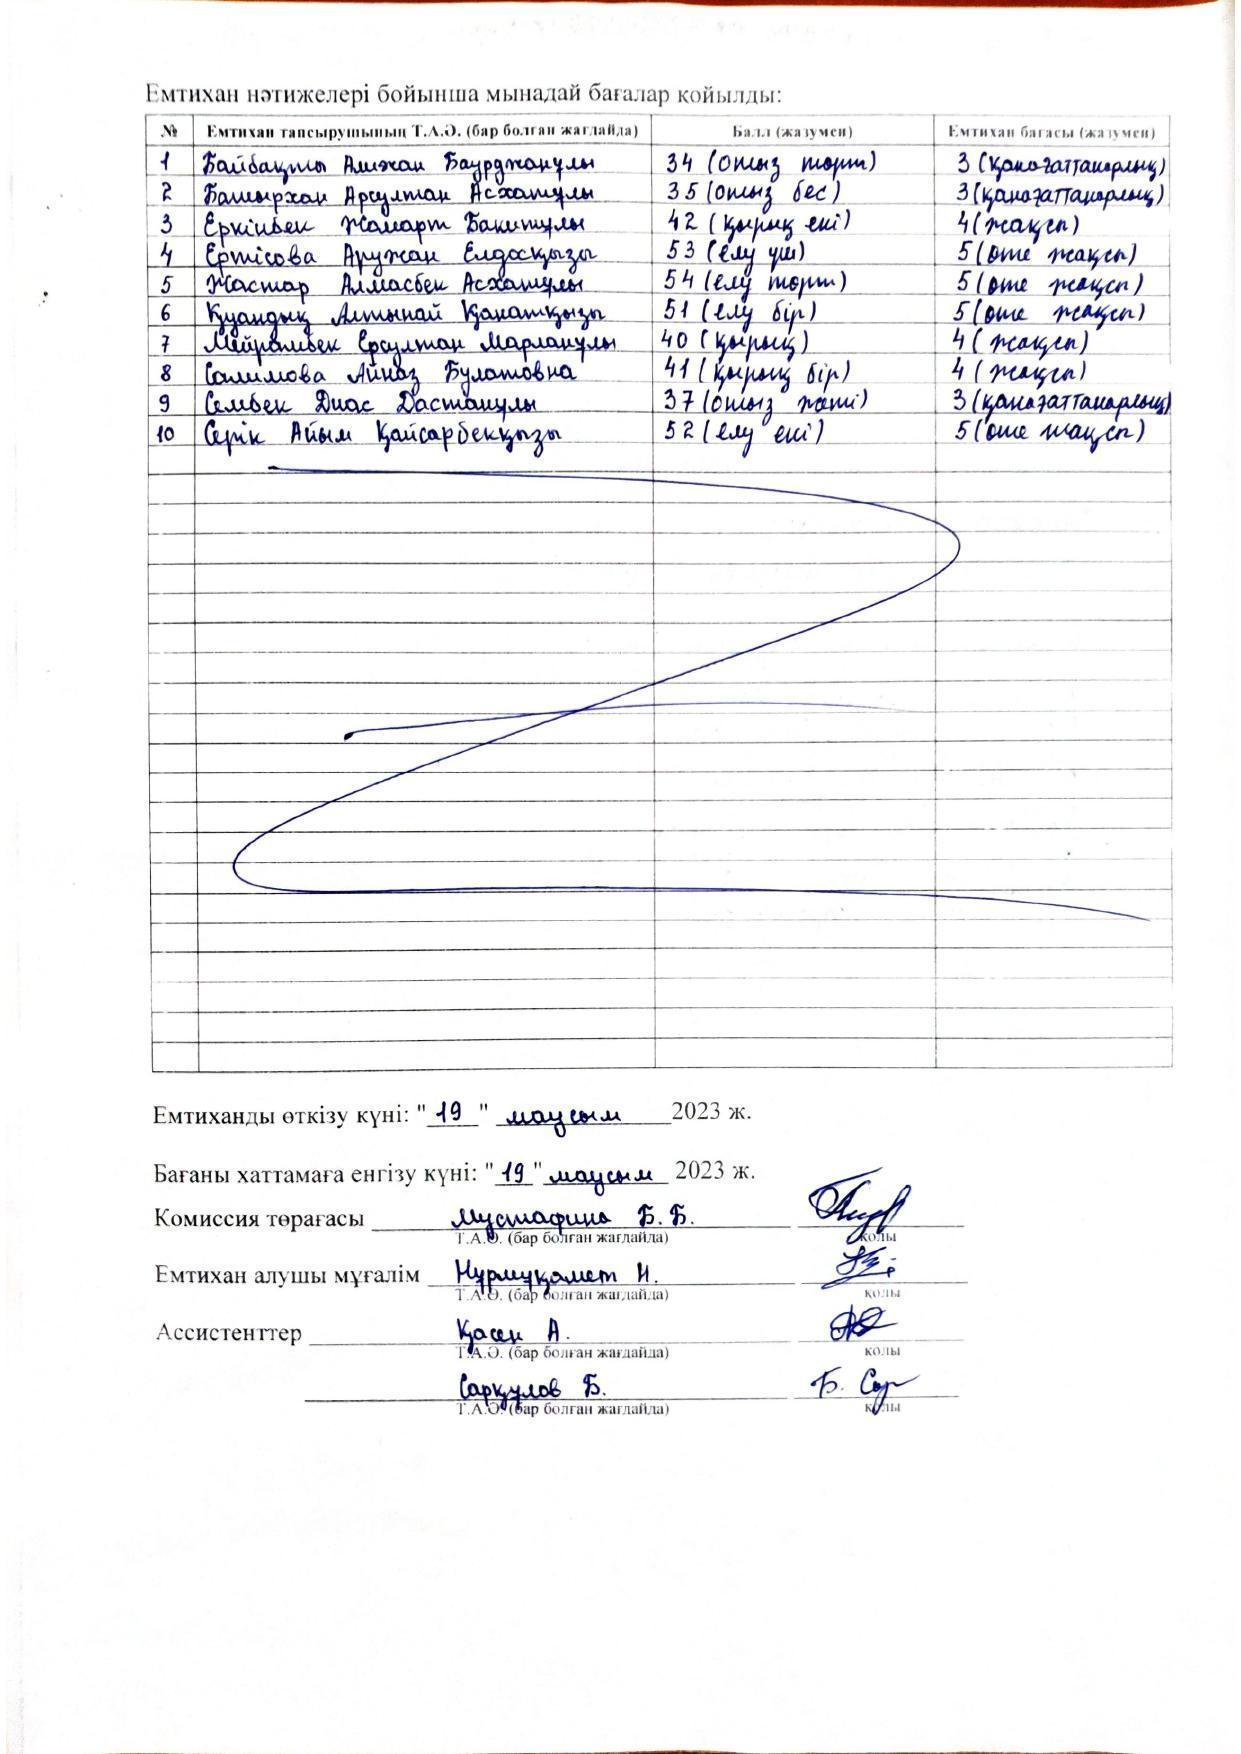 Емтихан нәтижелері бойынша мынадай бағалар қойылды:
№ Емтихан тапсырушының Т.А.Ә. (бар болған жағдайда) Балл (жазумен) Емтихан бағасы (жазумен)
1 Байбақты Алижан Баурджанұлы 34 (отыз төрт) 3 (қанағаттанарлық)
2 Башырхан Арсұлтан Асхатұлы 35 (отыз бес) 3 (қанағаттанарлық)
3 Еркінбек Жомарт Бакитұлы 42 (қырық екі) 4 (жақсы)
4 Ертісова Аружан Елдосқызы 53 (елу үш) 5 (өте жақсы)
5 Жастар Алмасбек Асхатұлы 54 (елу төрт) 5 (өте жақсы)
6 Қуандық Алтынай Қанатқызы 51 (елу бір) 5 (өте жақсы)
7 Мейрамбек Ерсұлтан Марланұлы 40 (қырық) 4 (жақсы)
8 Салимова Айназ Булатовна 41 (қырық бір) 4 (жақсы)
9 Сембек Диас Дастанұлы 37 (отыз жеті) 3 (қанағаттанарлық)
10 Серік Айым Қайсарбекқызы 52 (елу екі) 5 (өте жақсы)
Емтиханды өткізу күні: "19" маусым 2023 ж.
Бағаны хаттамаға енгізу күні: "19" маусым 2023 ж.
Комиссия төрағасы Мустафина Б.Б.
Т.А.Ә. (бар болған жағдайда) қолы
Емтихан алушы мұғалім Нұрмұқамет Н.
Т.А.Ә. (бар болған жағдайда) қолы
Ассистенттер Қасен А.
Т.А.Ә. (бар болған жағдайда) қолы
Сарқұлов Б. Б. Сар
Т.А.Ә. (бар болған жағдайда) қолы